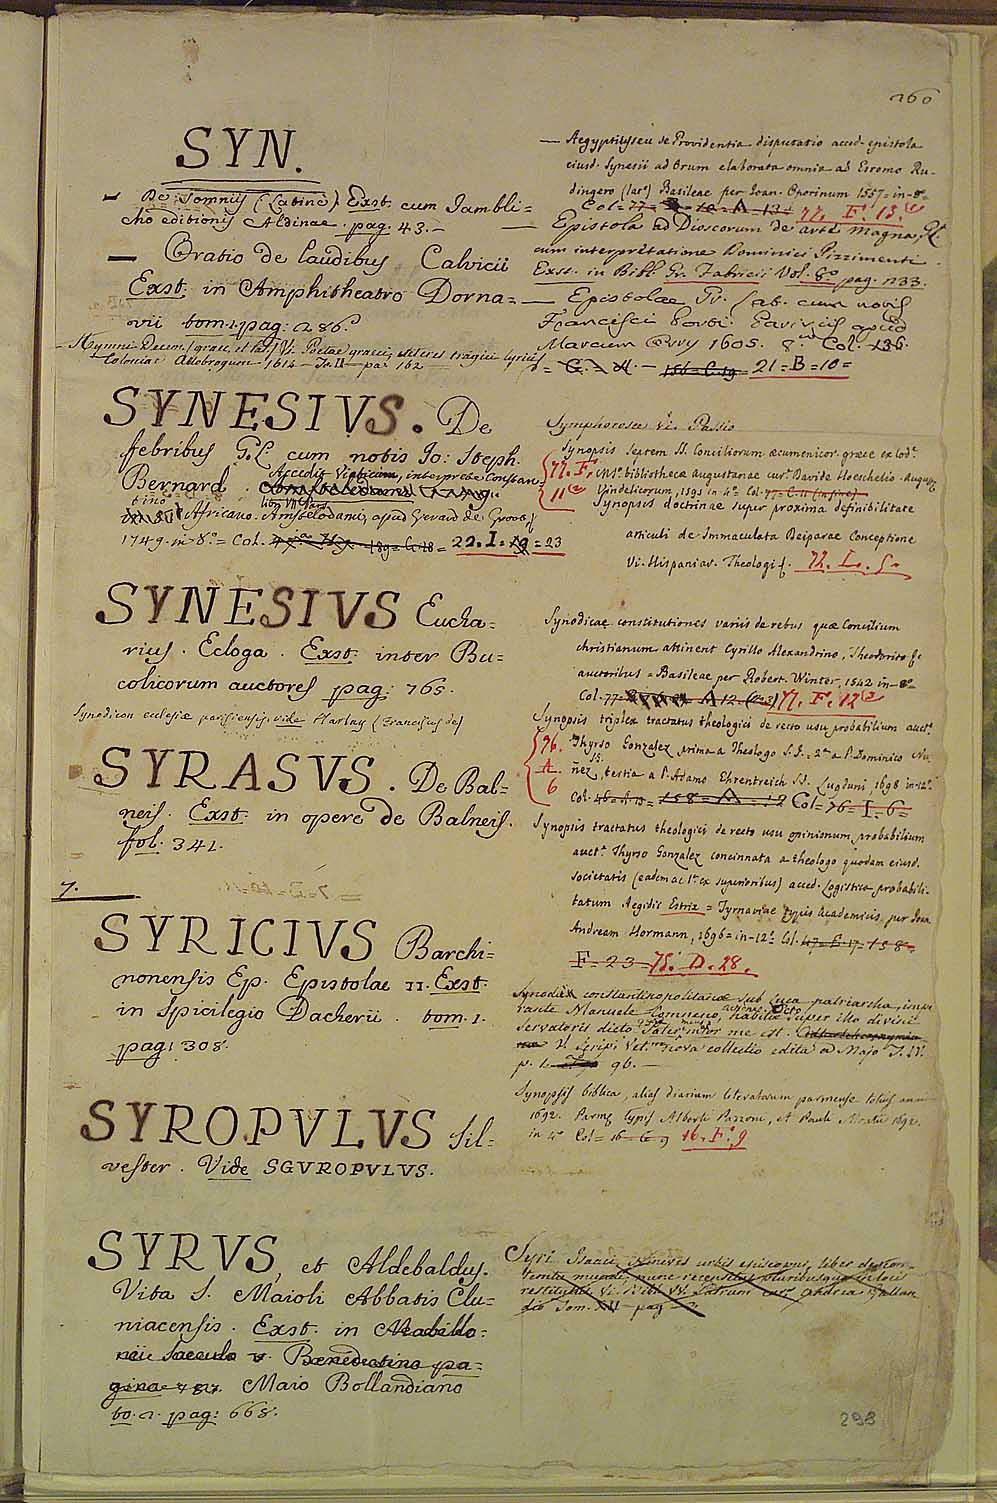 260
SYN.
— De Somniis (Latine) Exst. cum Jambli=
cho editionis Aldinae. pag. 43.—
— Oratio de laudibus Calvicii
Exst. in Amphitheatro Dorna=
vii tom. 1. pag: 286.
Hymni Decem (graec. et lat.) Vi. Poetae graeci veteres tragici lyrici
Coloniae Allobrogum 1614 — To. II — pa. 162
SYNESIVS. De
febribus G. L. cum notis Io: Steph.
Bernard Accedit Viatici, interprete Constan=
tino Africano. lib. VII Pars
Amstelodami, apud Gerard de Groot
1749. in 8.° = Col. 22. I. 19 = 23
SYNESIVS Eucha=
rius. Ecloga. Exst. inter Bu=
colicorum auctores pag: 765.
Synodicon ecclesiae parisiensis vide Harlay (Franciscus de)
SYRASVS. De Bal=
neis. Exst. in opere de Balneis.
fol. 341.
7.
SYRICIVS Barchi=
nonensis Ep. Epistolae II. Exst.
in Spicilegio Dacherii. tom. 1.
pag: 308.
SYROPVLVS Sil=
vester. Vide SGVROPVLVS.
SYRVS, et Aldebaldus.
Vita S. Maioli Abbatis Clu=
niacensis. Exst. in Mabillo=
nii Saeculo v. Benedictino pa=
gina 787. Maio Bollandiano
to. 2. pag: 668.
— Aegyptius seu de Providentia disputatio acced. epistola
eiusd. Synesii ad Orum elaborata omnia ab Esromo Ru=
dingero (lat.) Basileae per Ioan. Oporinum 1557 = in-8.°
Col. 77 = 10 = A = 13 = 77. F. 13.
— Epistola ad Dioscorum de arte magna,
cum interpretatione Dominici Pizzimenti.
Exst. in Bibl. Gr. Fabricii Vol. 8.° pag. 233.
— Epistolae Gr. Lat. cum notis
Francisci Parisiis apud
Marcum Orry 1605. 8.° Col. 136.
21 = B = 10 =
Symphorosae Vi. Passio
Synopsis Septem SS. Conciliorum oecumenicor. graece ex Cod.
77. F. ms. bibliothecae augustanae cur. Davide Hoeschelio. August.
11 Vindelicorum, 1595 in 4.° Col. 77 = C. 11 (in fine)
Synopsis doctrinae super proxima definibilitate
articuli de Immaculata Deiparae Conceptione
Vi. Hispaniar. Theologi f. 72. L. 5.
Synodicae constitutiones variis de rebus quae Concilium
christianum attinent Cyrillo Alexandrino, Theodorito &.
auctoribus = Basileae per Robert. Winter, 1542 in-8.°
Col. 77 = A 12. 77. F. 12
Synopsis triplex tractatus theologici de recto usu probabilium auct.
76. Thyrso Gonzalez prima a Theologo S. J., 2.a a P. Dominico Nu=
A. ñez, tertia a P. Adamo Ehrentreich SJ. Lugduni, 1698 in-12.°
6 Col. 158 = A = 12 Col = 76 = I. 6 =
Synopsis tractatus theologici de recto usu opinionum probabilium
auct. Thyrso Gonzalez concinnata a theologo quodam eiusd.
societatis (eadem ac 1.a ex superioribus) acced. Logistica probabili=
tatum Aegidii Estrix = Tyrnaviae typis Academicis, per Ioan.
Andream Hormann, 1696 = in-12.° Col. 47 = E. 17 = 158 =
F = 23 = 75. D. 28.
Synodi constantinopolitanae sub Luca patriarcha, impe
rante Manuele Comneno, habita super illo divini
Servatoris dicto Pater maior me est.
V. Script. Vet. nova collectio edita ab Majo T. IV.
p. 1 96. —
Synopsis biblica, alias diarium literatorum parmense totius anni
1692. Parmae typis Alberti Pazzoni, et Pauli Montii 1692.
in 4.° Col = 16 — C. 9 16. F. 9
Syri Isaaci, Ninives urbis episcopus, liber de con=
temtu mundi, nunc recensitus pluribusque in locis
restitutus. Vi. Bibl. VV. Patrum cur. Andrea Gallan
dio Tom. XII — pag — 3.
298